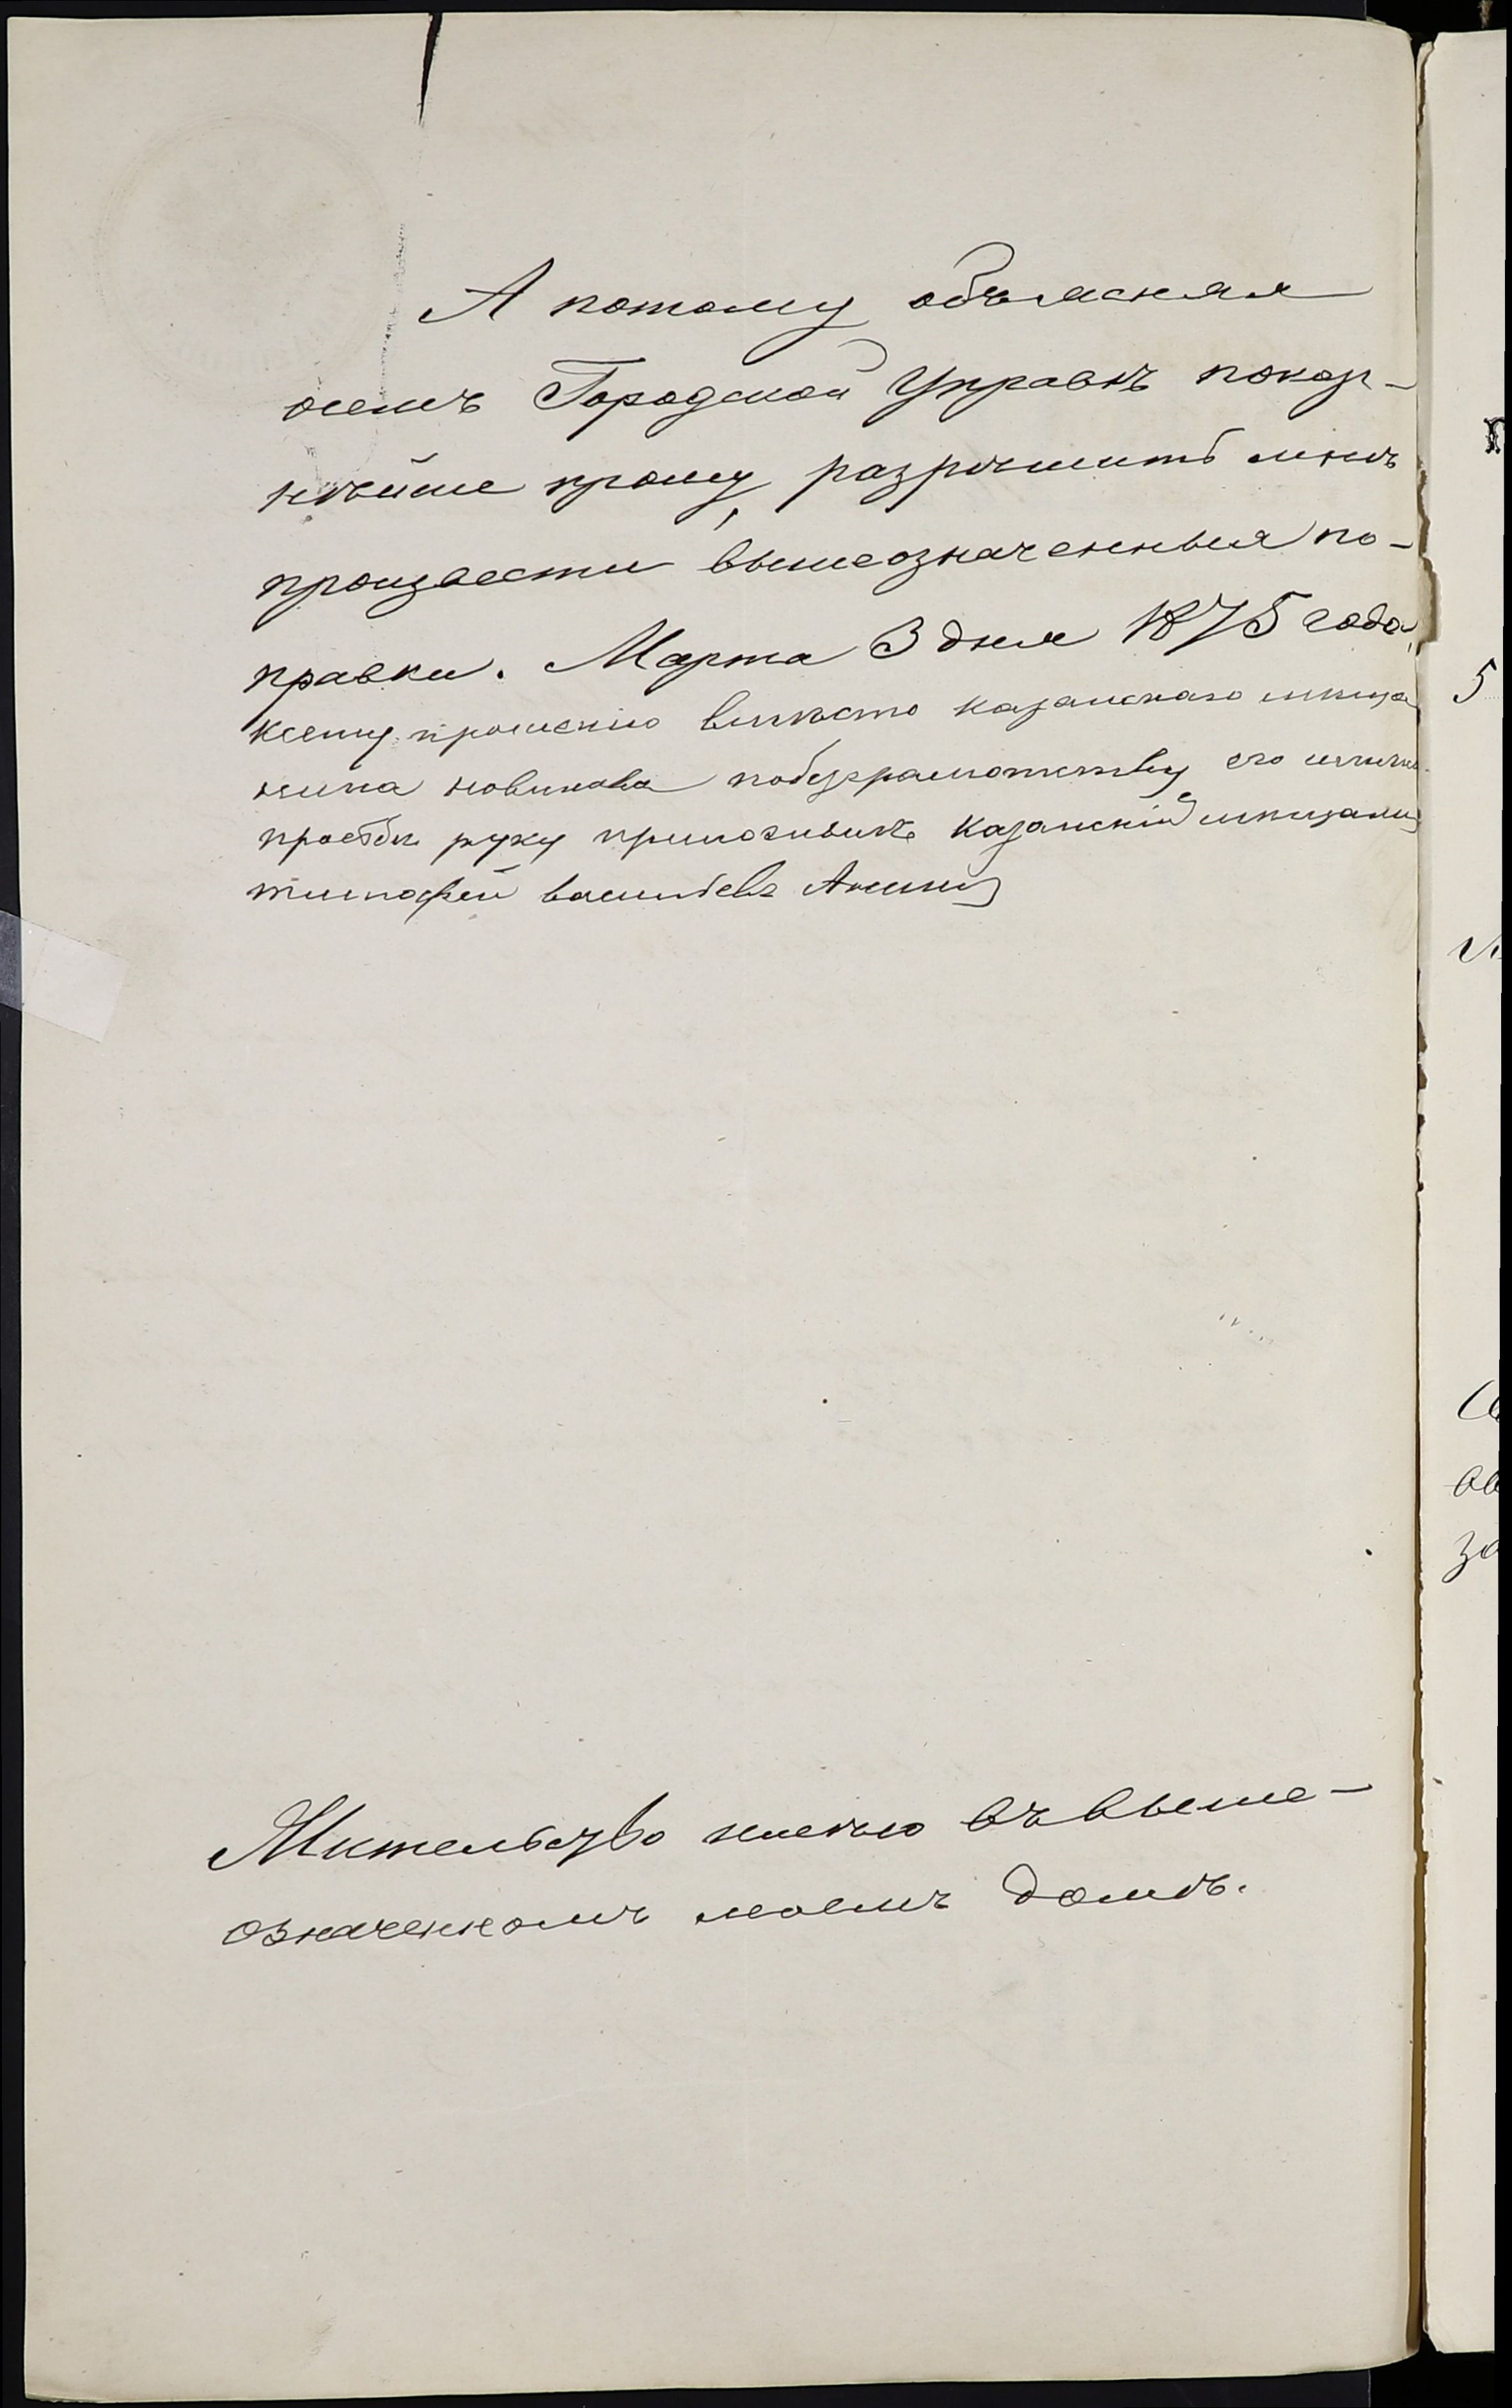 А потому объясняя
осемъ Городской Управѣ покор-
нѣйше прошу, разрѣшить мнѣ
произвести вышеозначенныя по-
правки. Марта 3 дня 1875 года
ксему прошению вместо казанскаго меща
нина новикова побезграмотству его илично
прозбы руку приложилъ казанскій мещанинъ
тимофей васильевъ
Жительство имѣю въ выше-
означенномъ моемъ домѣ.
5
за